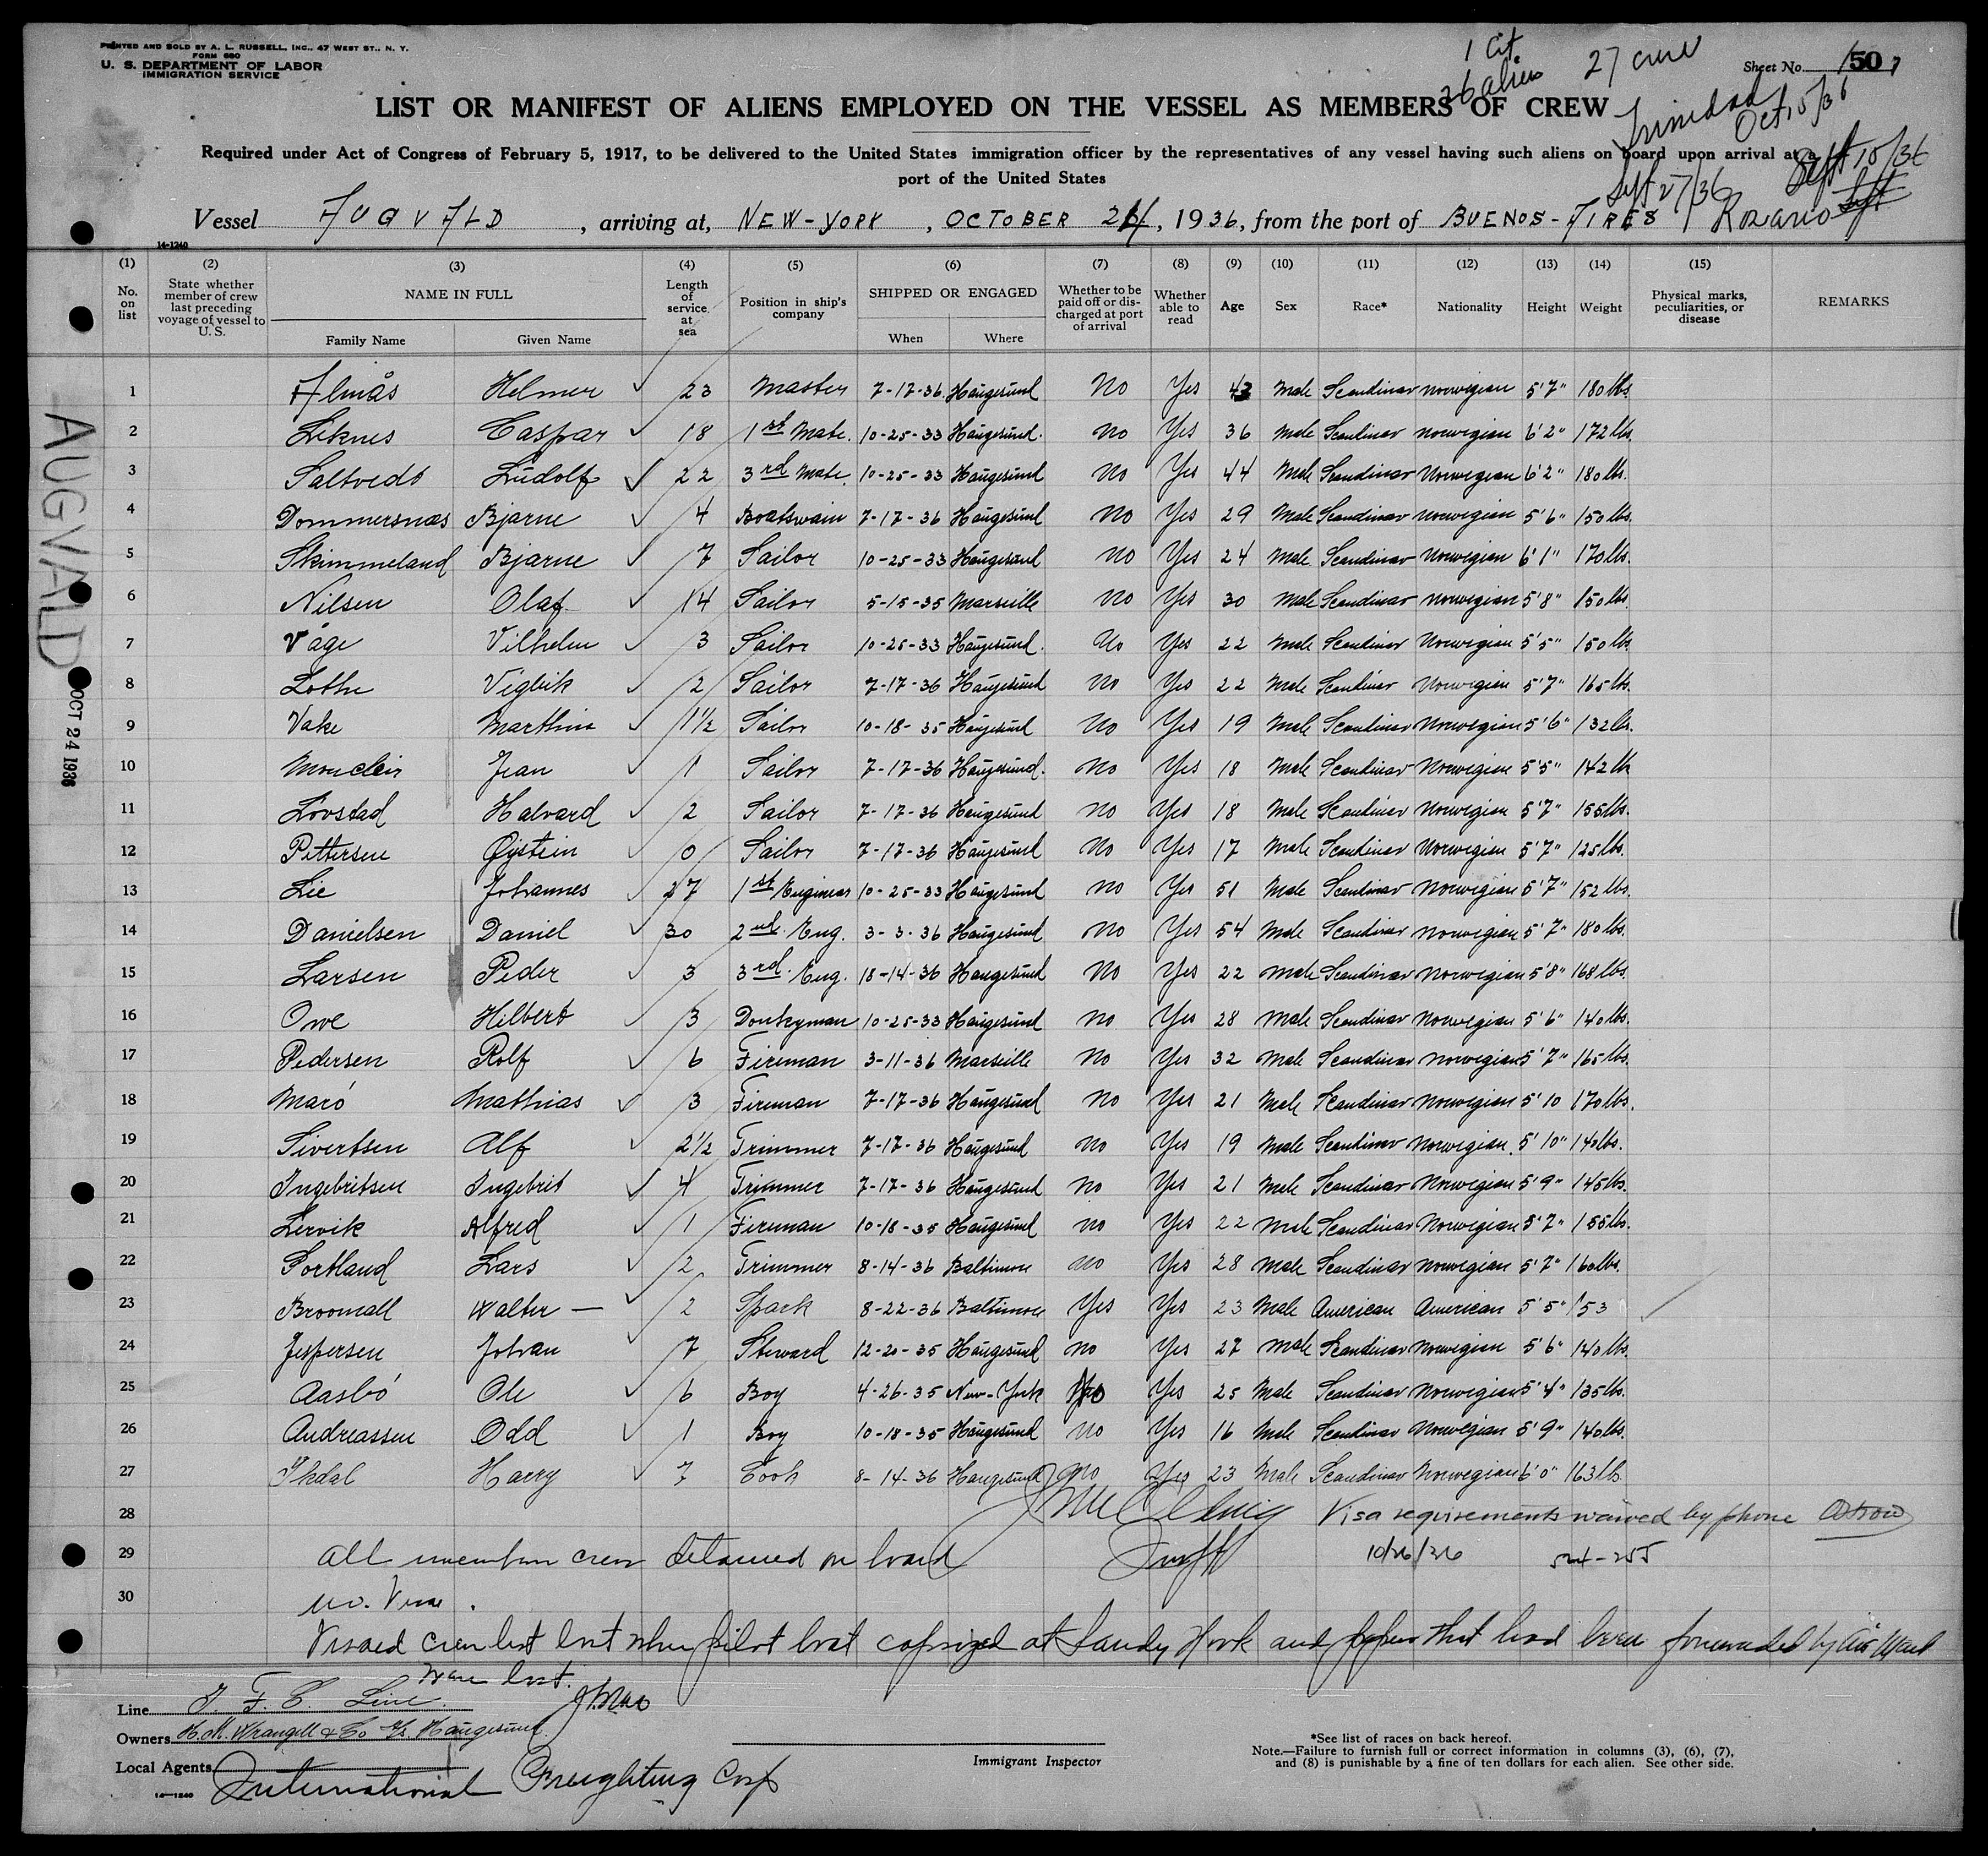 PRINTED AND SOLD BY A. L. RUSSELL, INC., 47 WEST ST., N. Y.
FORM 680
U. S. DEPARTMENT OF LABOR
IMMIGRATION SERVICE
1 Cit
26 alien
27 crew
Sheet No. 1
50
LIST OR MANIFEST OF ALIENS EMPLOYED ON THE VESSEL AS MEMBERS OF CREW
Trinidad
Oct 15/36
Required under Act of Congress of February 5, 1917, to be delivered to the United States immigration officer by the representatives of any vessel having such aliens on board upon arrival at a
port of the United States
Sept 15/36
Sept 27/36
Vessel AUGVALD, arriving at, NEW-YORK, OCTOBER 24, 1936, from the port of BUENOS-AIRES Rosario
14-1240
(1) (2) (3) (4) (5) (6) (7) (8) (9) (10) (11) (12) (13) (14) (15)
No. on list
State whether member of crew last preceding voyage of vessel to U. S.
NAME IN FULL
Family Name
Given Name
Length of service at sea
Position in ship's company
SHIPPED OR ENGAGED
When
Where
Whether to be paid off or discharged at port of arrival
Whether able to read
Age
Sex
Race*
Nationality
Height
Weight
Physical marks, peculiarities, or disease
REMARKS
1 Almås Helmer 23 Master 7-17-36 Haugesund No Yes 43 Male Scandinav Norwegian 5'7" 180 lbs.
2 Liknes Caspar 18 1st Mate. 10-25-33 Haugesund. No Yes 36 Male Scandinav Norwegian 6'2" 172 lbs.
3 Saltvedt Ludolf 22 3rd Mate. 10-25-33 Haugesund No Yes 44 Male Scandinav Norwegian 6'2" 180 lbs.
4 Dommersnæs Bjarne 4 Boatswain 7-17-36 Haugesund No Yes 29 Male Scandinav Norwegian 5'6" 150 lbs.
5 Skimmeland Bjarne 7 Sailor 10-25-33 Haugesund No Yes 24 Male Scandinav Norwegian 6'1" 170 lbs.
6 Nilsen Olaf 14 Sailor 5-15-35 Marseille No Yes 30 Male Scandinav Norwegian 5'8" 150 lbs.
7 Våge Vilhelm 3 Sailor 10-25-33 Haugesund. No Yes 22 Male Scandinav Norwegian 5'5" 150 lbs
8 Lothe Vigleik 2 Sailor 7-17-36 Haugesund No Yes 22 Male Scandinav Norwegian 5'7" 165 lbs.
9 Vake Marthin 1 1/2 Sailor 10-18-35 Haugesund No Yes 19 Male Scandinav Norwegian 5'6" 132 lbs.
10 Jean 1 Sailor 7-17-36 Haugesund. No Yes 18 Male Scandinav Norwegian 5'5" 142 lb
11 Lövstad Halvard 2 Sailor 7-17-36 Haugesund No Yes 18 Male Scandinav Norwegian 5'7" 155 lbs.
12 Pettersen Øistein 0 Sailor 7-17-36 Haugesund No Yes 17 Male Scandinav Norwegian 5'7" 125 lbs.
13 Lie Johannes 27 1st Engineer 10-25-33 Haugesund No Yes 51 Male Scandinav Norwegian 5'7" 152 lbs.
14 Danielsen Daniel 30 2nd. Eng. 3-3-36 Haugesund No Yes 54 Male Scandinav Norwegian 5'7" 180 lbs.
15 Larsen Peder 3 3rd. Eng. 18-14-36 Haugesund No Yes 22 Male Scandinav Norwegian 5'8" 168 lbs.
16 Owe Hilbert 3 Donkeyman 10-25-33 Haugesund No Yes 28 Male Scandinav Norwegian 5'6" 140 lbs.
17 Pedersen Rolf 6 Fireman 3-11-36 Marseille No Yes 32 Male Scandinav Norwegian 5'7" 165 lbs.
18 Maró Mathias 3 Fireman 7-17-36 Haugesund No Yes 21 Male Scandinav Norwegian 5'10 170 lbs.
19 Sivertsen Alf 2 1/2 Trimmer 7-17-36 Haugesund No Yes 19 Male Scandinav Norwegian 5'10" 140 lbs.
20 Ingebritsen Ingebrit 4 Trimmer 7-17-36 Haugesund No Yes 21 Male Scandinav Norwegian 5'9" 145 lbs.
21 Lervik Alfred 1 Fireman 10-18-35 Haugesund No Yes 22 Male Scandinav Norwegian 5'7" 155 lbs.
22 Sortland Lars 2 Trimmer 8-14-36 Baltimore No Yes 28 Male Scandinav Norwegian 5'7" 160 lbs.
23 Broomall Walter — 2 Spark 8-22-36 Baltimore Yes Yes 23 Male American American 5'5" 153
24 Jespersen Johan 7 Steward 12-20-35 Haugesund No Yes 27 Male Scandinav Norwegian 5'6" 140 lbs.
25 Aasbó Ole 6 Boy 4-26-35 New-York No Yes 25 Male Scandinav Norwegian 5'4" 135 lbs.
26 Andreassen Odd 1 Boy 10-18-35 Haugesund No Yes 16 Male Scandinav Norwegian 5'9" 140 lbs.
27 Harry 7 Cook 8-14-36 Haugesund No Yes 23 Male Scandinav Norwegian 6'0" 163 lb
28 Visa requirements waived by phone
29 All member crew detained on board 10/26/36 - 255
30 no. Visae.
Visaed crew list lost when pilot boat capsized at Sandy Hook and papers that had been forwarded by Air Mail
were lost.
Line I. F. C. Line.
Owners H. M. Wrangell & Co A/s. Haugesund
Local Agents International Freighting Corp
Immigrant Inspector
*See list of races on back hereof.
Note.—Failure to furnish full or correct information in columns (3), (6), (7),
and (8) is punishable by a fine of ten dollars for each alien. See other side.
14—1240
AUGVALD
OCT 24 1936